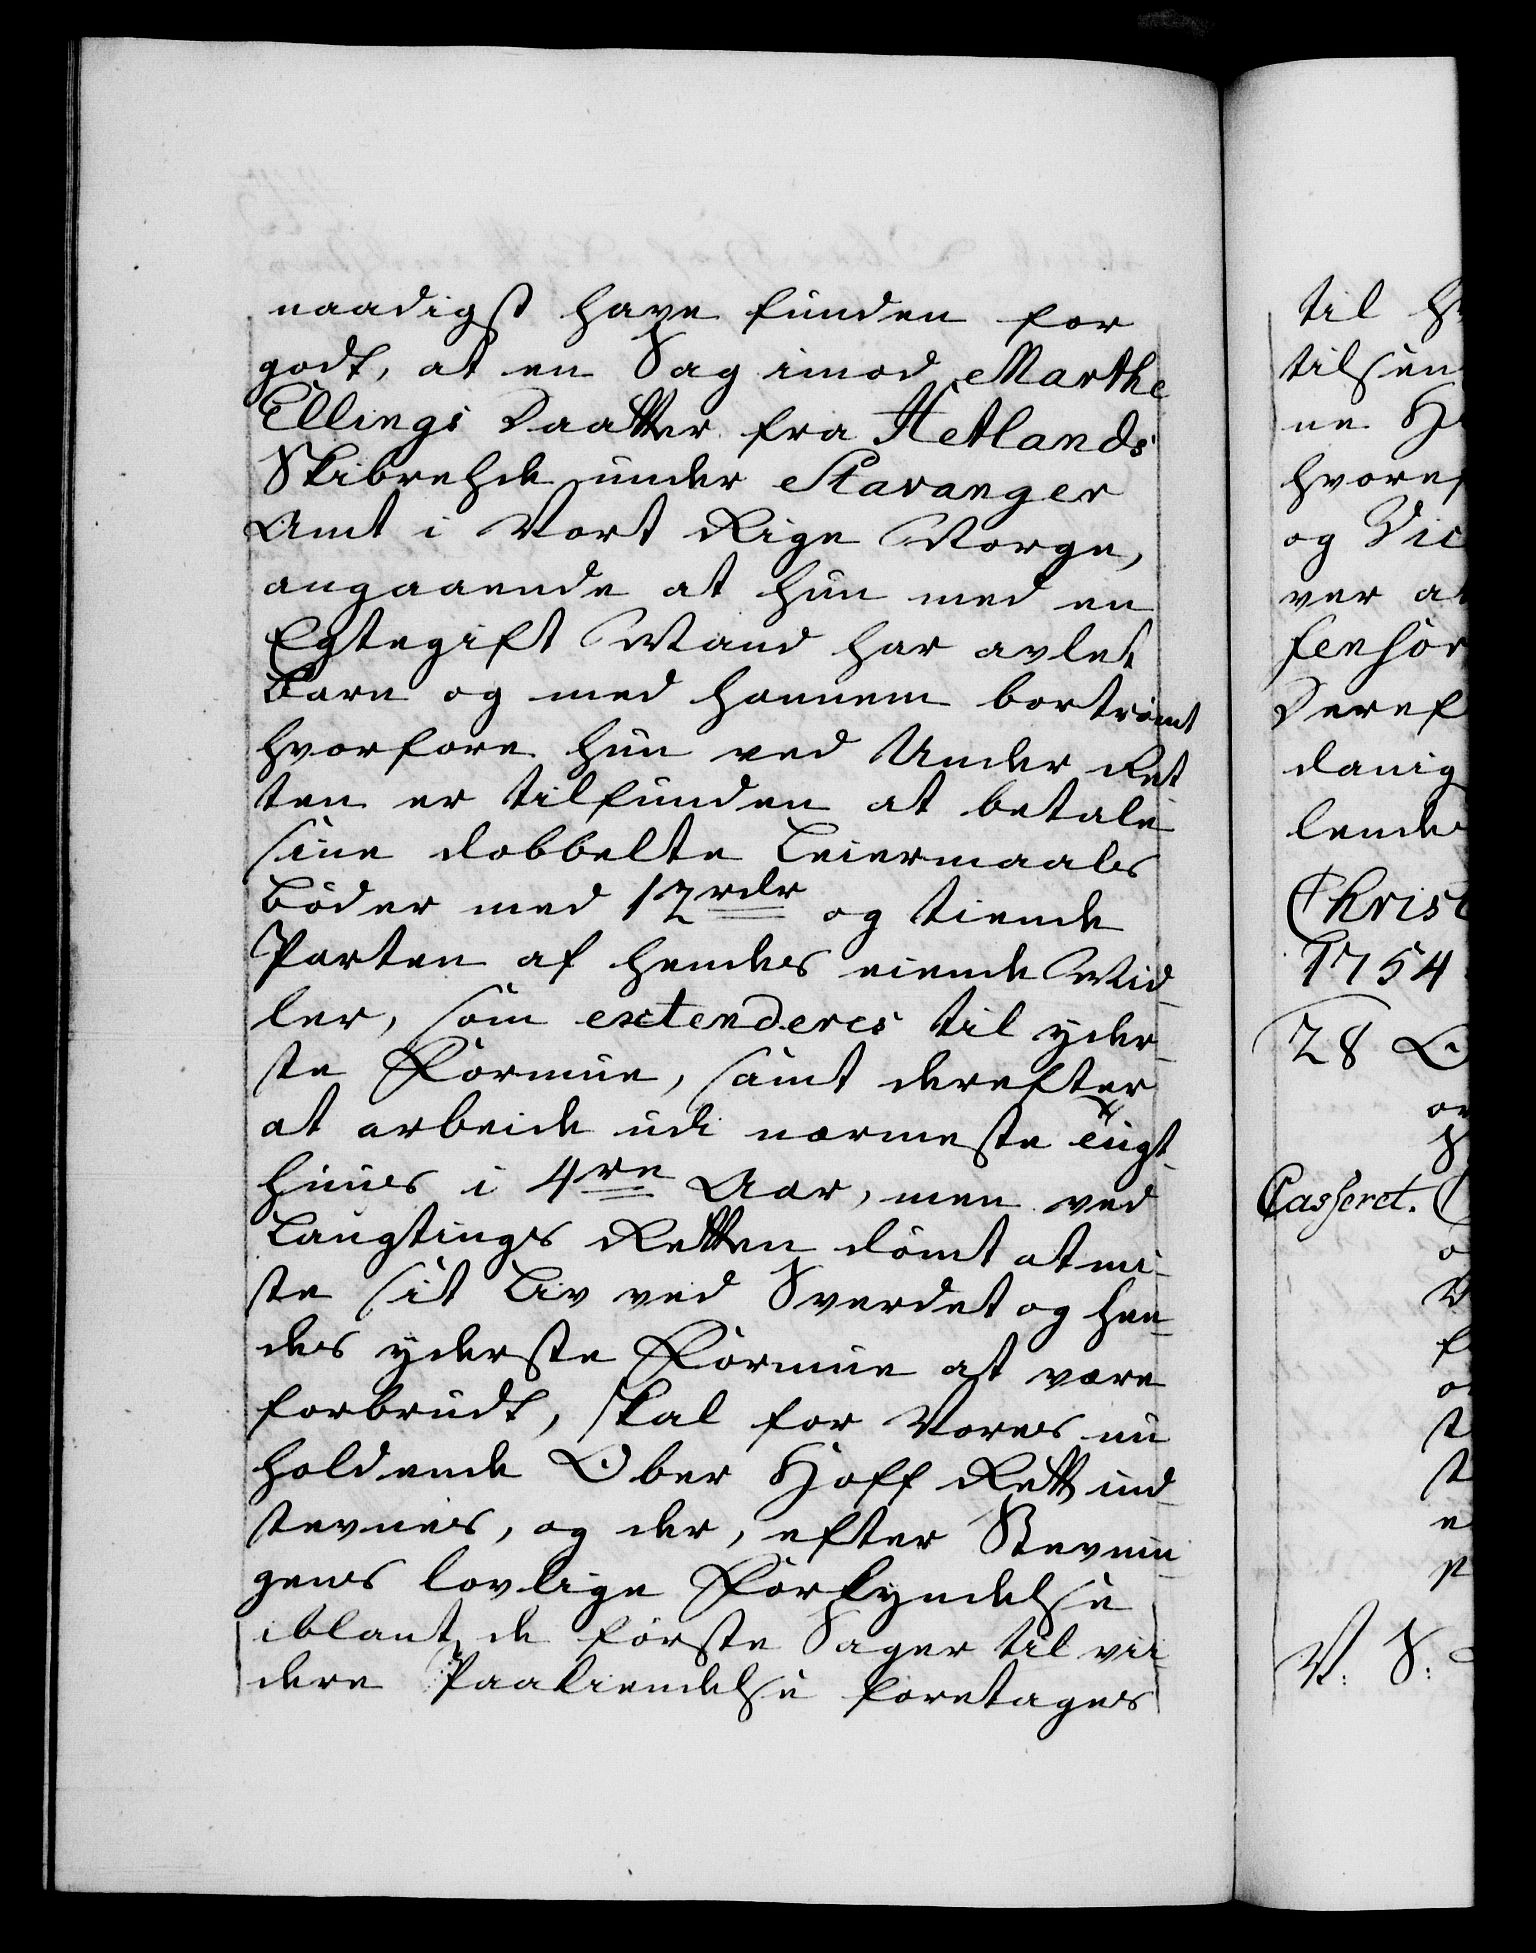 naadigst have funden for
godt, at en Sag imod Marthe
Ellings Daatter fra Hetlands
Skibrehde under Stavanger
Amt i Vort Rige Norge,
angaaende at hun med en
Egtegift Mand har avlet
Barn og med hannem bortrømt
hvorfore hun ved Under Ret
ten er tilfunden at betale
sine dobbelte Leiermaals
Bøder med 12 rdr og tiende
Parten af hendes eiende Mid-
ler, som extenderes til yder-
ste Formue, samt derefter
at arbeide udi nærmeste Tugt
huus i 4re Aar, men ved
Laugtings Retten dømt at mi-
ste sit Liv ved Sverdet og hen-
des yderste Formue at være
forbrudt, skal for Vores nu
holdende Ober Hoff Rett ind-
stevnes, og der, efter Stevnin-
gens lovlige Forkyndelse
iblant de første Sager til vii-
dere Paakiendelse foretages
til
tilsen
ne
hvoref
og Vic
ver at
fensor
Deref
danig
lende
Christ
1754
28
Casseret.
V. S.